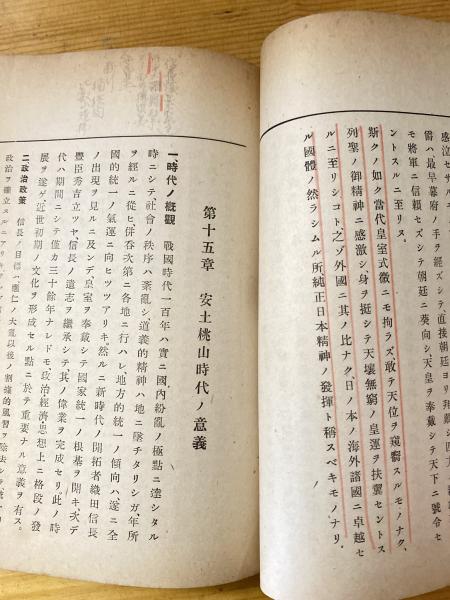 感泣セサル
爵ハ最早幕府ノ手ヲ經ズシテ、直接朝廷ヨリ拜戴シ
モ將軍ニ信賴セズシテ朝廷ニ葵向シ、天皇ヲ奉戴シテ天下ニ號令セ
ントスルニ至リス。
斯クノ如ク當代皇室式微ニモ拘ラズ、敢テ天位ヲ窺窬スルモノナク、
列聖ノ御精神ニ感激シ、身ヲ挺シテ天壤無窮ノ皇運ヲ扶翼セントス
ルニ至リシコト之ゾ外國ニ其ノ比ナク、日ノ本ノ海外諸國ニ卓越セ
ル國體ノ然ラシムル所、純正日本精神ノ發揮ト稱スベキモノナリ。
第十五章 安土桃山時代ノ意義
一、時代ノ概觀 戰國時代一百年ハ實ニ國內紛亂ノ極點ニ達シタル
時ニシテ社會ノ秩序ハ紊亂シ、道義的精神ハ地ニ墜チタリシガ、年所
ヲ經ルニ從ヒ併呑次第ニ各地ニ行ハレ、地方的統一ノ傾向ハ遂ニ全
國的統一ノ氣運ニ向ヒツツアリキ、然ルニ新時代ノ開拓者織田信長
ノ出現ヲ見ルニ及ンデ、皇室ヲ奉戴シテ國家統一ノ根基ヲ開キ、次デ
豐臣秀吉立ツヤ、信長ノ遺志ヲ繼承シテ其ノ偉業ヲ完成セリ此ノ時
代ハ期間ニシテ僅カ三十餘年ナレドモ、政治、經濟、思想上ニ格段ノ發
展ヲ遂ゲ、近世初期ノ文化ヲ形成セル點ニ於テ重要ナル意義ヲ有ス。
二、政治政策 信長ノ目標ハ應仁ノ大亂以後ノ割據的風習ヲ除去シ
政治ヲ確立スルニアリキ